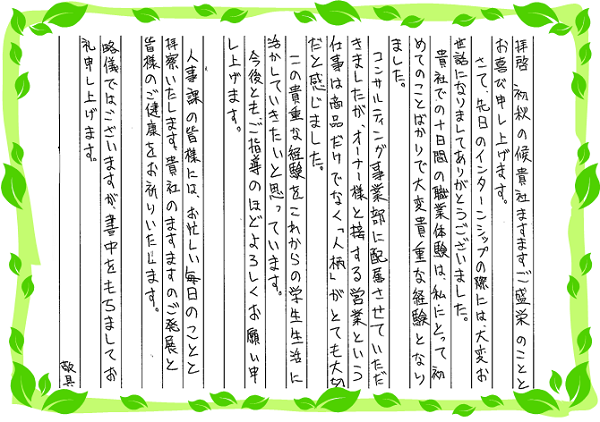 拝啓 初秋の候貴社ますますご盛栄のことと
お喜び申し上げます。
さて、先日のインターンシップの際には、大変お
世話になりましてありがとうございました。
貴社での十日間の職業体験は、私にとって初
めてのことばかりで大変貴重な経験となり
ました。
コンサルティング事業部に配属させていただ
きましたが、オーナー様と接する営業という
仕事は商品だけでなく「人柄」がとても大切
だと感じました。
この貴重な経験をこれからの学生生活に
活かしていきたいと思っています。
今後とも、ご指導のほどよろしくお願い申
し上げます。
人事課の皆様には、お忙しい毎日のことと
拝察いたします。貴社のますますのご発展と
皆様のご健康をお祈りいたします。
略儀ではございますが、書中をもちましてお
礼申し上げます。
敬具